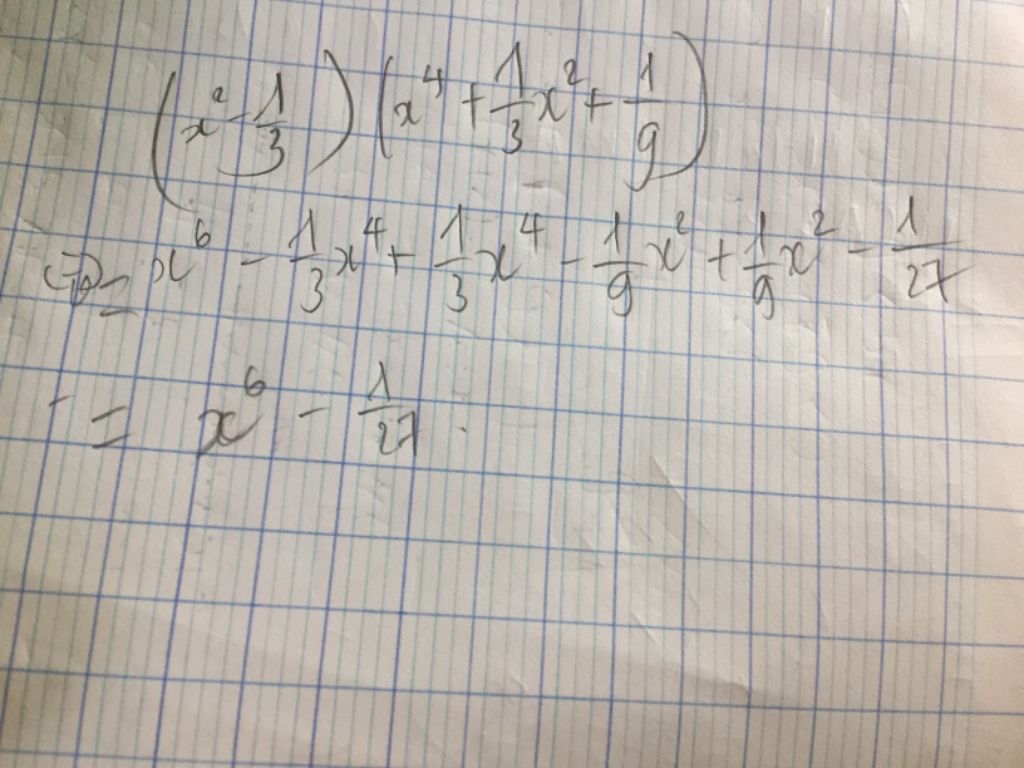 (x² - 1/3) (x⁴ + 1/3 x² + 1/9)
= x⁶ - 1/3 x⁴ + 1/3 x⁴ - 1/9 x² + 1/9 x² - 1/27
= x⁶ - 1/27